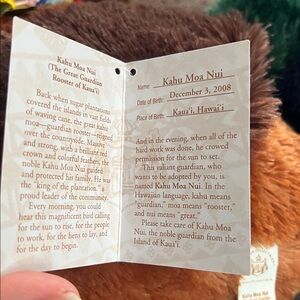 Kahu Moa Nui
(The Great Guardian
Rooster of Kaua'i)
Back when sugar plantations
covered the islands in vast fields
of waving cane, the great kahu
moa—guardian rooster—reigned
over the countryside. Massive
and strong, with a brilliant red
crown and colorful feathers, the
noble Kahu Moa Nui guided
and protected his family. He was
the "king of the plantation," a
proud leader of the community.
Every morning, you could
hear this magnificent bird calling
for the sun to rise, for the people
to work, for the hens to lay, and
for the day to begin.
Name: Kahu Moa Nui
Date of Birth: December 3, 2008
Place of Birth: Kaua'i, Hawai'i
And in the evening, when all of the
hard work was done, he crowed
permission for the sun to set.
"This valiant guardian, who
wants to be adopted by you, is
named Kahu Moa Nui. In the
Hawaiian language, kahu means
"guardian," moa means "rooster,"
and nui means "great."
Please take care of Kahu Moa
Nui, the noble guardian from the
Island of Kaua'i.
Kahu Moa Nui